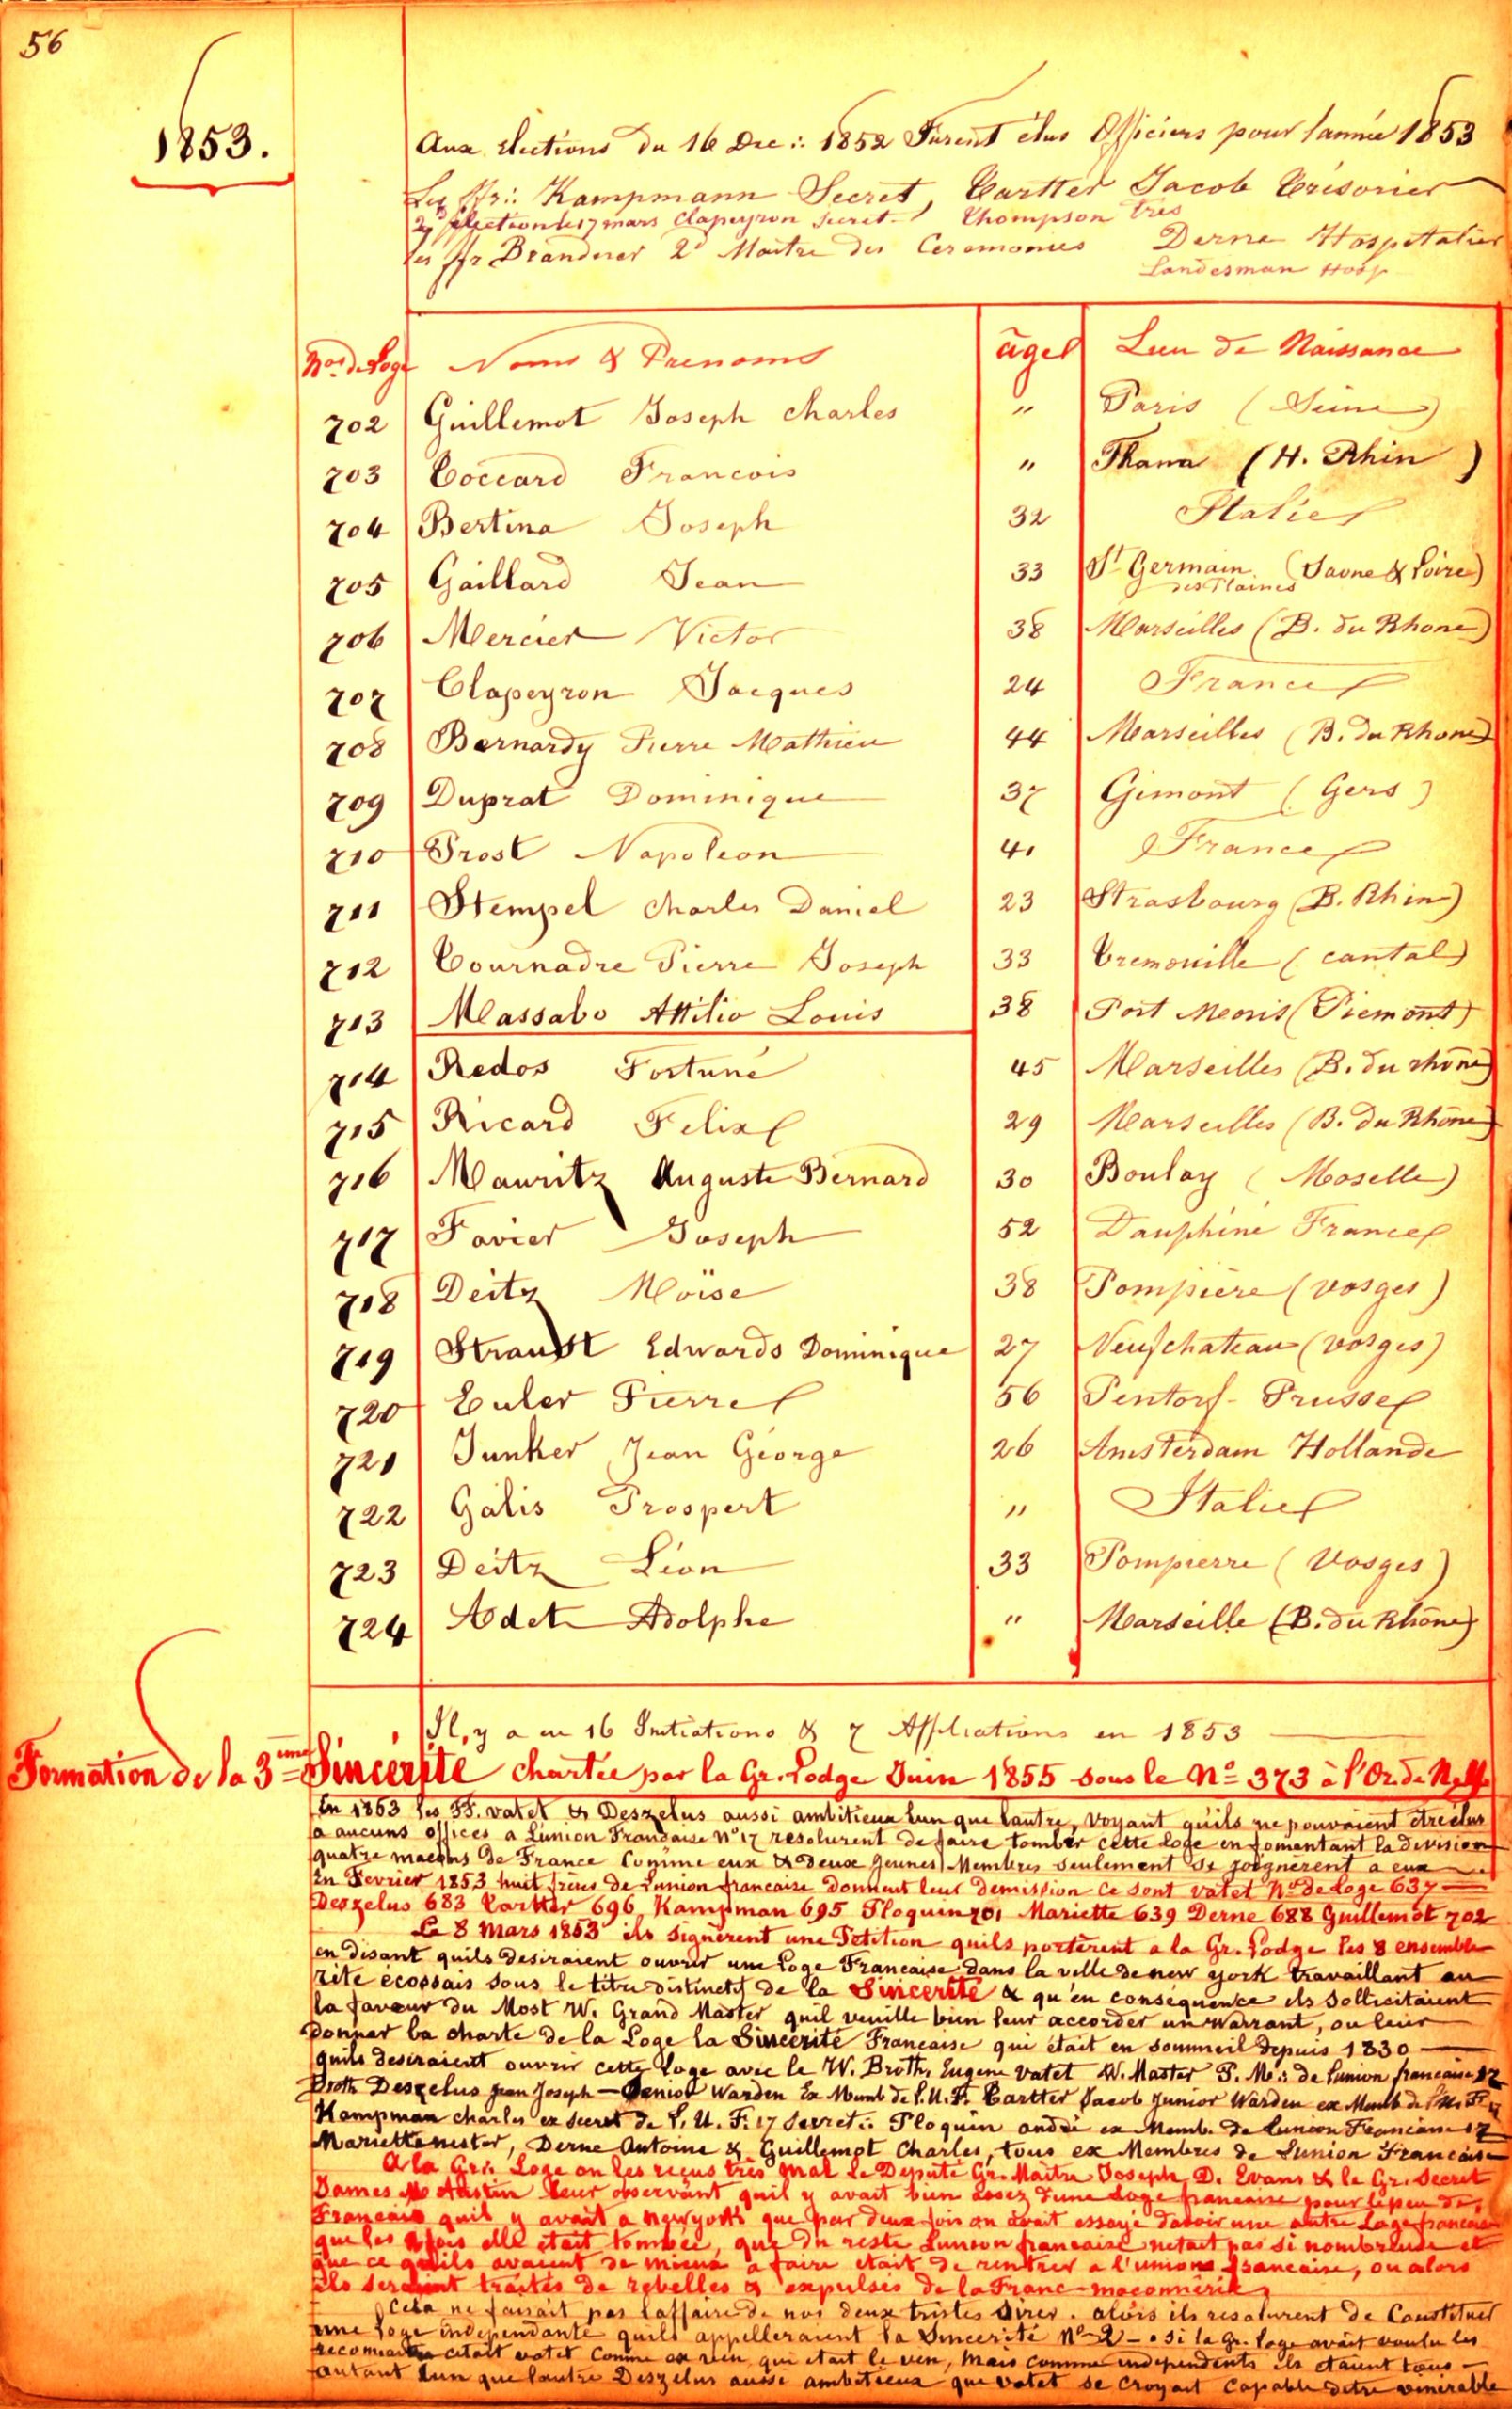 56
1853.
Aux Elections du 16 Dec∴ 1852 Furent élus Officiers pour l'année 1853
Les ffr∴ Kampmann Secret, Cartter Jacob Trésorier
2d Election le 17 mars Clapeyron Secret. Thompson Tres
les ffr Branderer 2d Maitre des Ceremonies Derne Hospitalier
Landesman Hosp
Nos de Loge Noms & Prenoms âges Lieu de Naissance
702 Guillemot Joseph Charles " Paris (Seine)
703 Coccard Francois " Thann (H. Rhin)
704 Bertina Joseph 32 Italie
705 Gaillard Jean 33 St Germain (Saone & Loire)
des Plaines
706 Mercier Victor 38 Marseilles (B. du Rhone)
707 Clapeyron Jacques 24 France
708 Bernardy Pierre Mathieu 44 Marseilles (B. du Rhone)
709 Duprat Dominique 37 Gimont (Gers)
710 Prost Napoleon 41 France
711 Stempel Charles Daniel 23 Strasbourg (B. Rhin)
712 Tournadre Pierre Joseph 33 Tremouille (cantal)
713 Massabo Attilio Louis 38 Port Moris (Piemont)
714 Redos Fortuné 45 Marseilles (B. du rhône)
715 Ricard Felix 29 Marseilles (B. du Rhône)
716 Mauritz Auguste Bernard 30 Boulay (Moselle)
717 Favier Joseph 52 Dauphiné France
718 Deitz Moïse 38 Pompiere (vosges)
719 Straust Edwards Dominique 27 Neufchateau (vosges)
720 Euler Pierre 56 Pentorf - Prusse
721 Junker Jean George 26 Amsterdam Hollande
722 Galis Prospert " Italie
723 Deitz Léon 33 Pompierre (Vosges)
724 Adet Adolphe " Marseille (B. du Rhône)
Il, y a eu 16 Initiations & 7 Affiliations en 1853
Formation de la 3eme Sincérité chartée par la Gr. Lodge Juin 1855 sous le No 373 à l'Or. de
En 1853 les FF. vatet & Deszelus aussi ambitieux lun que lautre, voyant quils ne pouvaient etre élus
a aucuns offices a Lunion Francaise No 17 resolurent de faire tomber cette loge en fomentant la division
quatre macons de France Comme eux & deux jeunes Membres seulement se joignerent a eux
En Fevrier 1853 huit freres de Lunion francaise donnent leur demission Ce sont vatet No de Loge 637
Deszelus 683 Cartter 696 Kampman 695 Ploquin 701 Mariette 639 Derne 688 Guillemot 702
Le 8 Mars 1853 ils signèrent une Petition quils portèrent a la Gr. Lodge les 8 ensemble
en disant quils desiraient ouvrir une Loge Francaise dans la ville de new york travaillant au
rite ecossais sous le titre distinctif de la Sincerité & qu'en conséquence ils sollicitaient
la faveur du Most W. Grand Master quil veuille bien leur accorder un Warrant, ou leur
donner la charte de la Loge la Sincerité Francaise qui était en sommeil depuis 1830
quils desiraient ouvrir cette Loge avec le W. Broth. Eugene Vatet W. Master P. M∴ de Lunion francaise 17
Broth Deszelus Jean Joseph — Senior Warden Ex Memb de L. U. F. Cartter Jacob Junior Warden ex Memb de L.U. F. 17
Kampman charles ex secret de L. U. F. 17 Secret∴ Ploquin andré ex Memb. de Lunion Francaise 17
Mariette nistor, Derne Antoine & Guillemot Charles, tous ex Membres de Lunion Francaise
A la Gr∴ Loge on les recus très mal Le Deputé Gr. Maitre Joseph D. Evans & le Gr. Secret
James M Austin leur observant quil y avait bien assez d'une Loge francaise pour le peu de
Francais quil y avait a Newyork que par deux fois on avait essayé davoir une autre Loge francaise
que les 2 fois elle etait tombée, que du reste Lunion francaise netait pas si nombreuse et
que ce quils avaient de mieux a faire etait de rentrer a l'union francaise, ou alors
ils seraient traités de rebelles & expulsés de la Franc-maconnerie
Cela ne faisait pas laffaire de nos deux tristes Sires. alors ils resolurent de Constituer
une loge independante quils appelleraient la Sincerité No 2 - . si la gr. loge avait voulu les
reconnaitre cetait vatet comme ex rien qui etait le ven, Mais comme independents ils etaient tous
autant lun que lautre Deszelus aussi ambitieux que vatet se croyait capable detre venerable